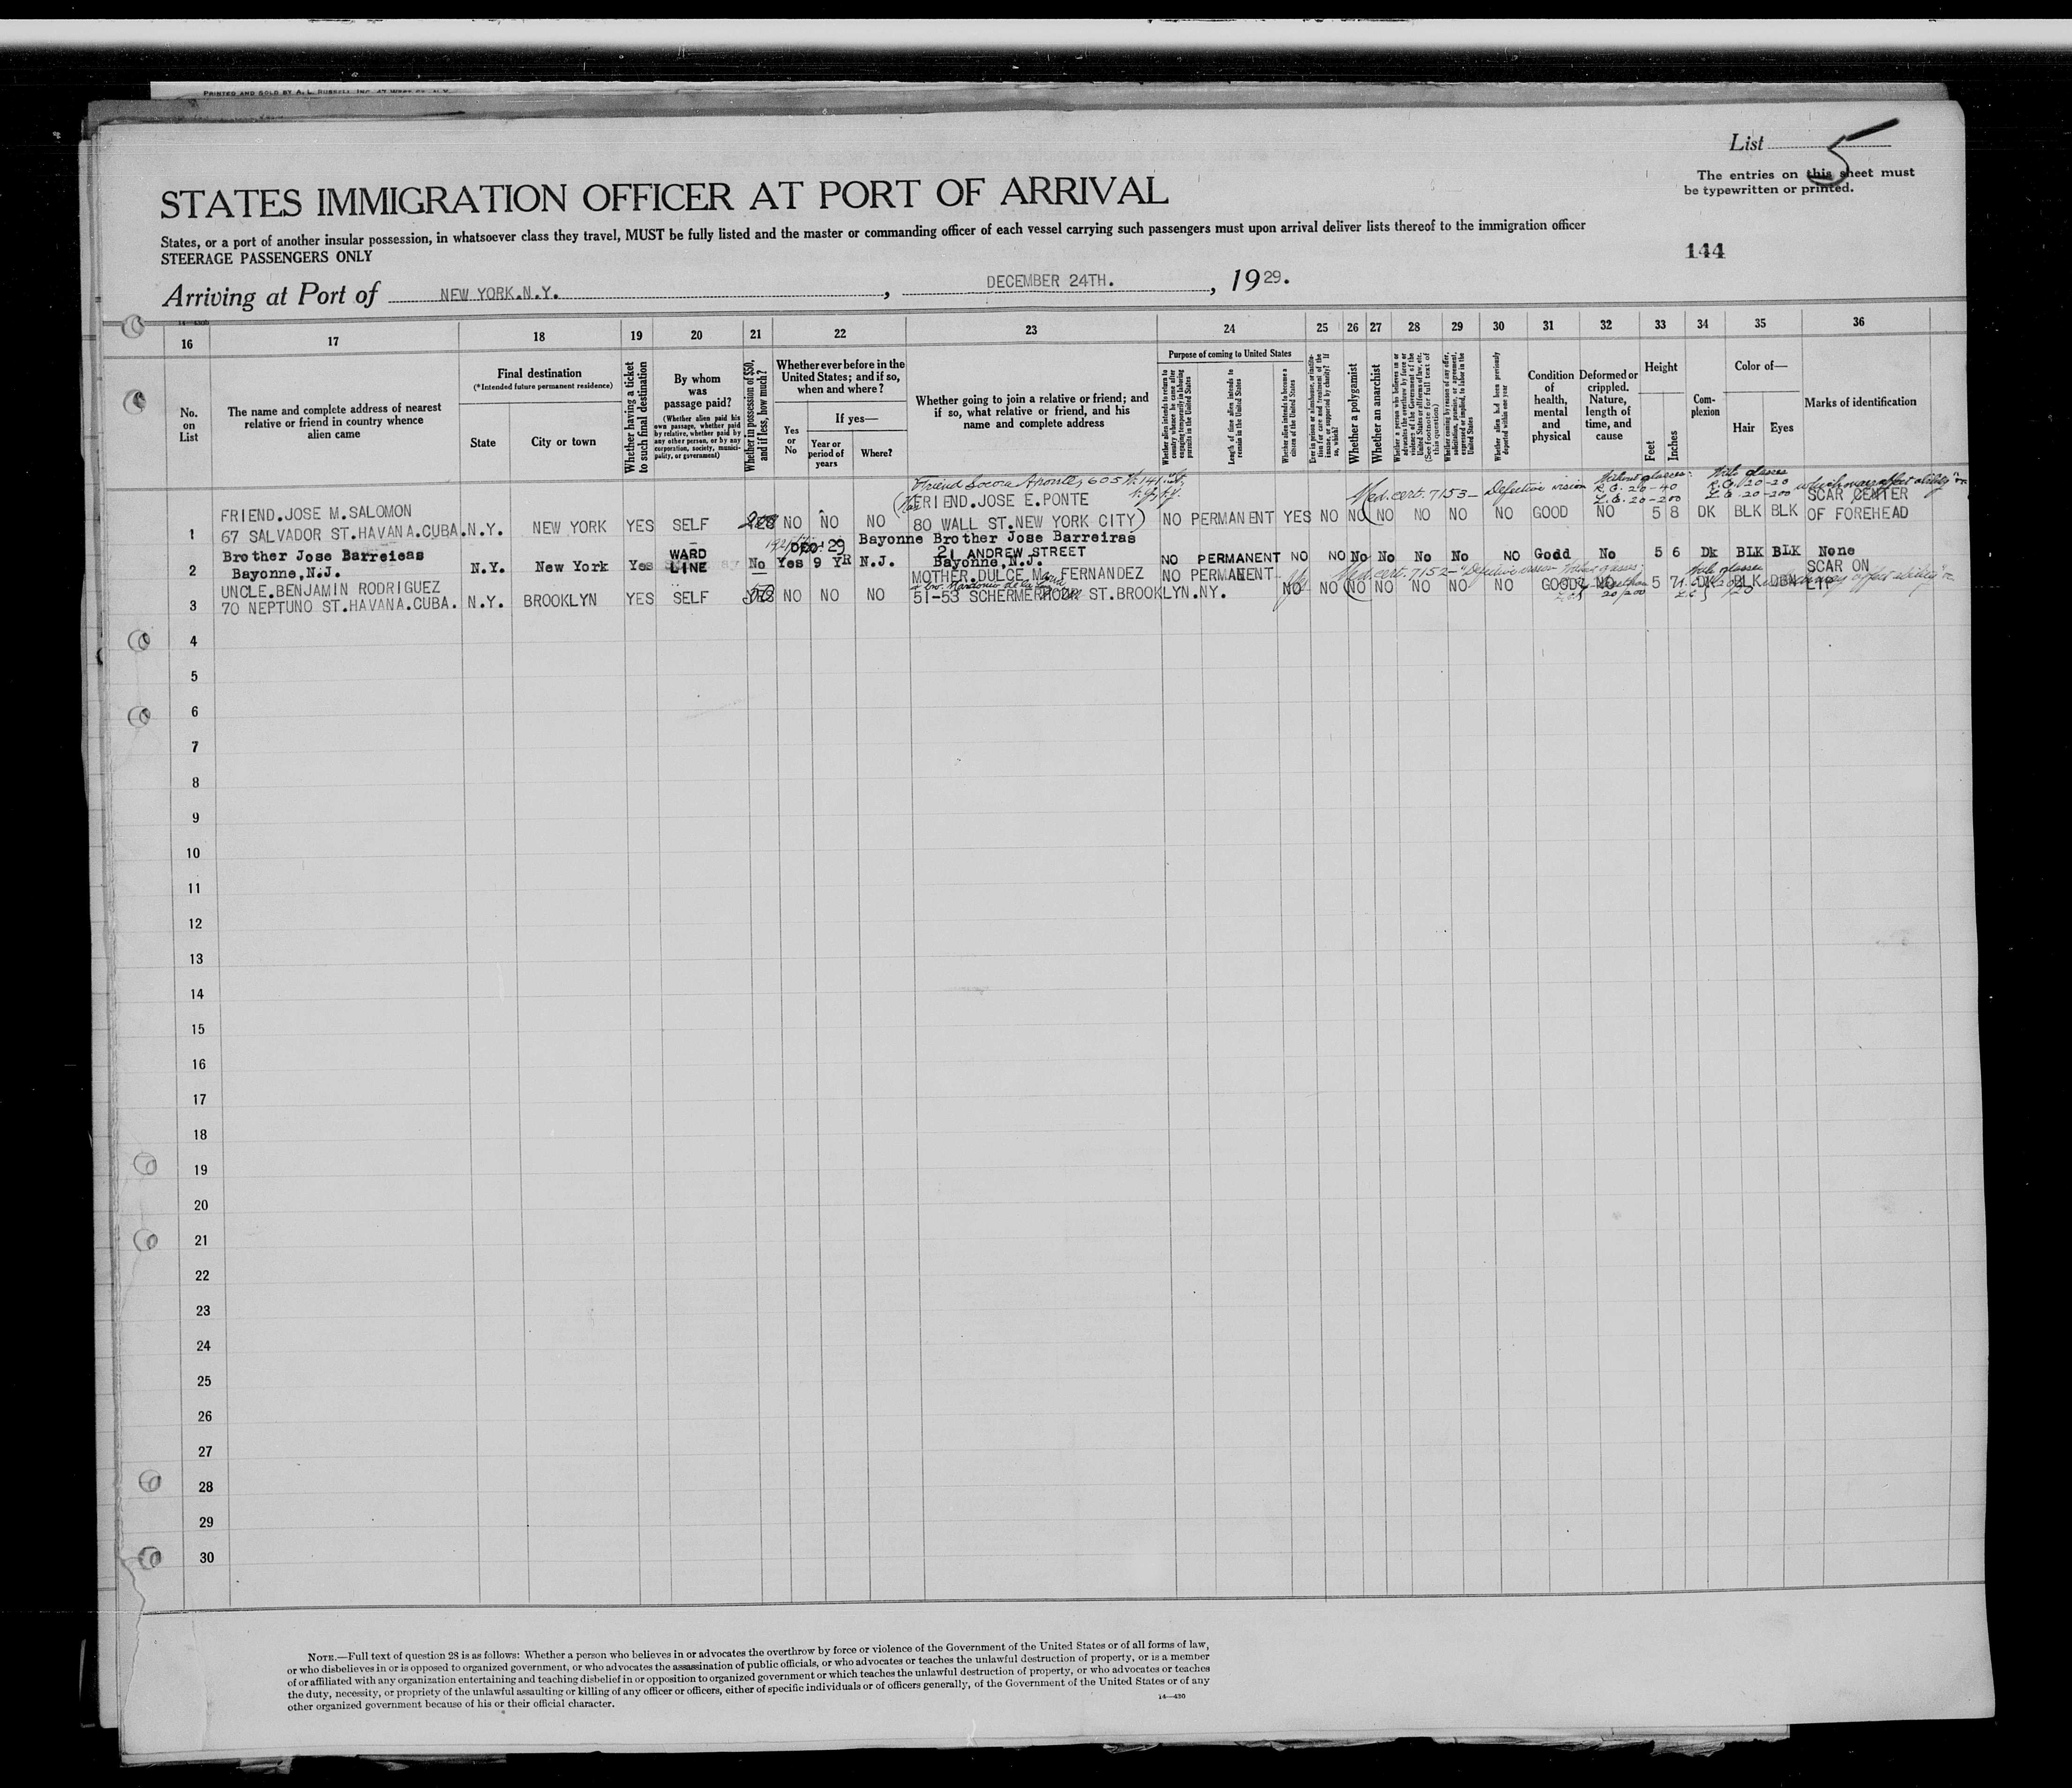 PRINTED AND SOLD BY A. L. RUSSELL INC.
List 5
The entries on this sheet must
be typewritten or printed.
STATES IMMIGRATION OFFICER AT PORT OF ARRIVAL
States, or a port of another insular possession, in whatsoever class they travel, MUST be fully listed and the master or commanding officer of each vessel carrying such passengers must upon arrival deliver lists thereof to the immigration officer
STEERAGE PASSENGERS ONLY
144
Arriving at Port of NEW YORK.N.Y. , DECEMBER 24TH. , 19 29.
16 17 18 19 20 21 22 23 24 25 26 27 28 29 30 31 32 33 34 35 36
No. on List
The name and complete address of nearest relative or friend in country whence alien came
Final destination
(*Intended future permanent residence)
State
City or town
Whether having a ticket to such final destination
By whom was passage paid?
(Whether alien paid his own passage, whether paid by relative, whether paid by any other person, or by any corporation, society, municipality, or government)
Whether in possession of $50, and if less, how much?
Whether ever before in the United States; and if so, when and where?
Yes or No
If yes—
Year or period of years
Where?
Whether going to join a relative or friend; and if so, what relative or friend, and his name and complete address
Purpose of coming to United States
Whether alien intends to return to country whence he came after engaging temporarily in laboring pursuits in the United States
Length of time alien intends to remain in the United States
Whether alien intends to become a citizen of the United States
Ever in prison or almshouse, or institution for care and treatment of the insane, or supported by charity? If so, which?
Whether a polygamist
Whether an anarchist
Whether a person who believes in or advocates the overthrow by force or violence of the Government of the United States or all forms of law, etc. (See footnote for full text of this question)
Whether coming by reason of any offer, solicitation, promise, or agreement, expressed or implied, to labor in the United States
Whether alien had been previously deported within one year
Condition of health, mental and physical
Deformed or crippled. Nature, length of time, and cause
Height
Feet
Inches
Complexion
Color of—
Hair
Eyes
Marks of identification
Friend 605 W. 141 St.
N.Y. N.Y.
Med. cert. 7153 - Defective vision Without glasses: R.E. 20-40 L.E. 20-200 With glasses R.E. 20-20 L.E. 20-200 which may affect ability
1 FRIEND.JOSE M.SALOMON
67 SALVADOR ST.HAVANA.CUBA. N.Y. NEW YORK YES SELF NO NO NO FRIEND.JOSE E.PONTE
80 WALL ST.NEW YORK CITY) NO PERMANENT YES NO NO NO NO NO NO GOOD NO 5 8 DK BLK BLK SCAR CENTER
OF FOREHEAD
2 Brother Jose Barreieas
Bayonne,N.J. N.Y. New York Yes WARD
LINE No Yes DEC. 29
9 YR Bayonne
N.J. Brother Jose Barreiras
21 ANDREW STREET
Bayonne,N.J. NO PERMANENT NO NO No No No No NO Godd No 5 6 Dk BLK BLK None
Med. cert. 7152 - "Defective vision
3 UNCLE.BENJAMIN RODRIGUEZ
70 NEPTUNO ST.HAVANA.CUBA. N.Y. BROOKLYN YES SELF NO NO NO MOTHER.DULCE M. FERNANDEZ
51-53 SCHERMERHORN ST.BROOKLYN.NY. NO PERMANENT NO NO NO NO NO NO NO GOOD NO 5 7½ DK BLK DBN SCAR ON
LIP
4
5
6
7
8
9
10
11
12
13
14
15
16
17
18
19
20
21
22
23
24
25
26
27
28
29
30
NOTE.—Full text of question 28 is as follows: Whether a person who believes in or advocates the overthrow by force or violence of the Government of the United States or of all forms of law,
or who disbelieves in or is opposed to organized government, or who advocates the assassination of public officials, or who advocates or teaches the unlawful destruction of property, or is a member
of or affiliated with any organization entertaining and teaching disbelief in or opposition to organized government or which teaches the unlawful destruction of property, or who advocates or teaches
the duty, necessity, or propriety of the unlawful assaulting or killing of any officer or officers, either of specific individuals or of officers generally, of the Government of the United States or of any
other organized government because of his or their official character.
14—430